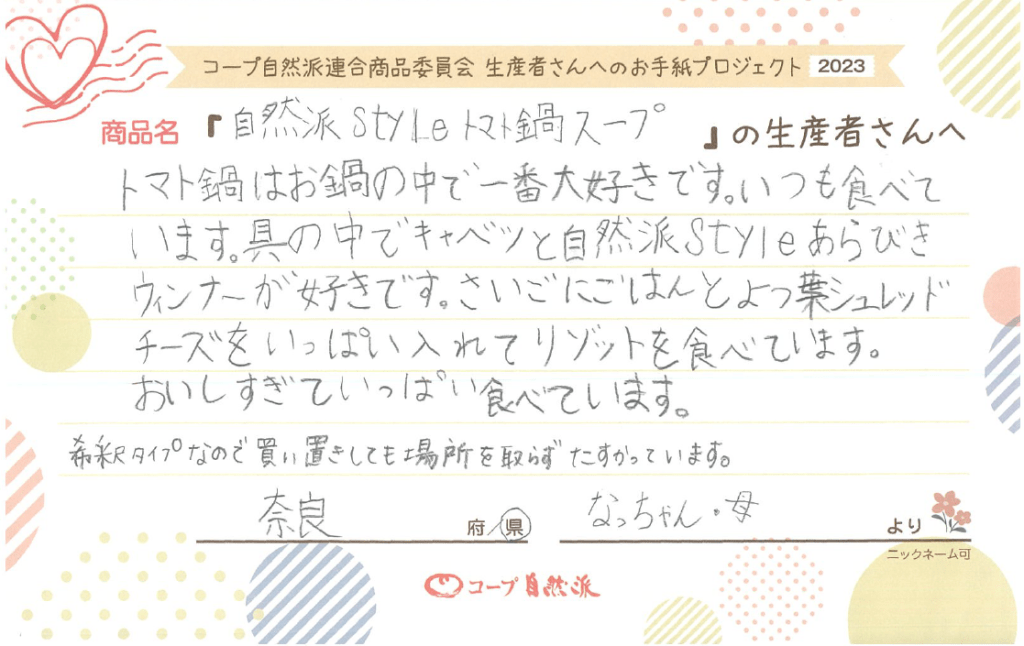 コープ自然派連合商品委員会 生産者さんへのお手紙プロジェクト 2023
商品名 『自然派Styleトマト鍋スープ 』の生産者さんへ
トマト鍋はお鍋の中で一番大好きです。いつも食べて
います。具の中でキャベツと自然派Styleあらびき
ウィンナーが好きです。さいごにごはんとよつ葉シュレッド
チーズをいっぱい入れてリゾットを食べています。
おいしすぎていっぱい食べています。
希釈タイプなので買い置きしても場所を取らずたすかっています。
奈良 府/県 なっちゃん・母 より
ニックネーム可
コープ自然派